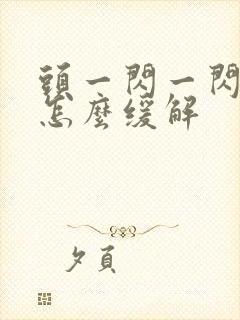 頭一閃一閃
怎麼缓解
夕頁